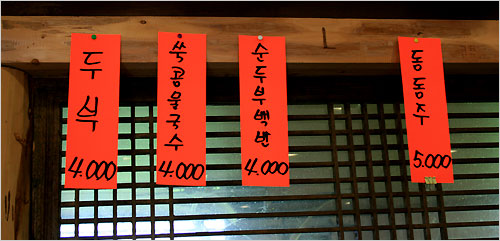 두식
4.000
쑥콩물국수
4.000
순두부백반
4.000
동동주
5.000